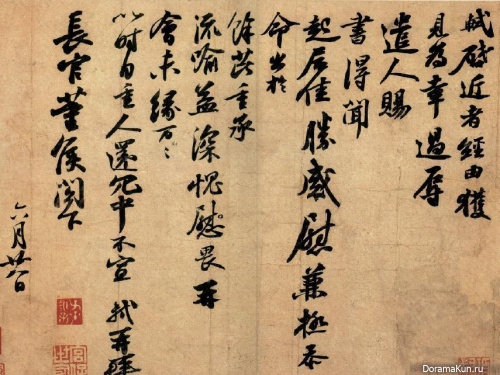 軾啟近者經由獲
見為幸過辱
遣人賜
書得聞
起居佳勝感慰兼極忝
命出於
餘芘重承
流喻益深愧慰畏再
會未緣万〻
以時自重人還冗中不宣 軾再拜
長官董侯閣下
六月廿八日
DoramaKun.ru